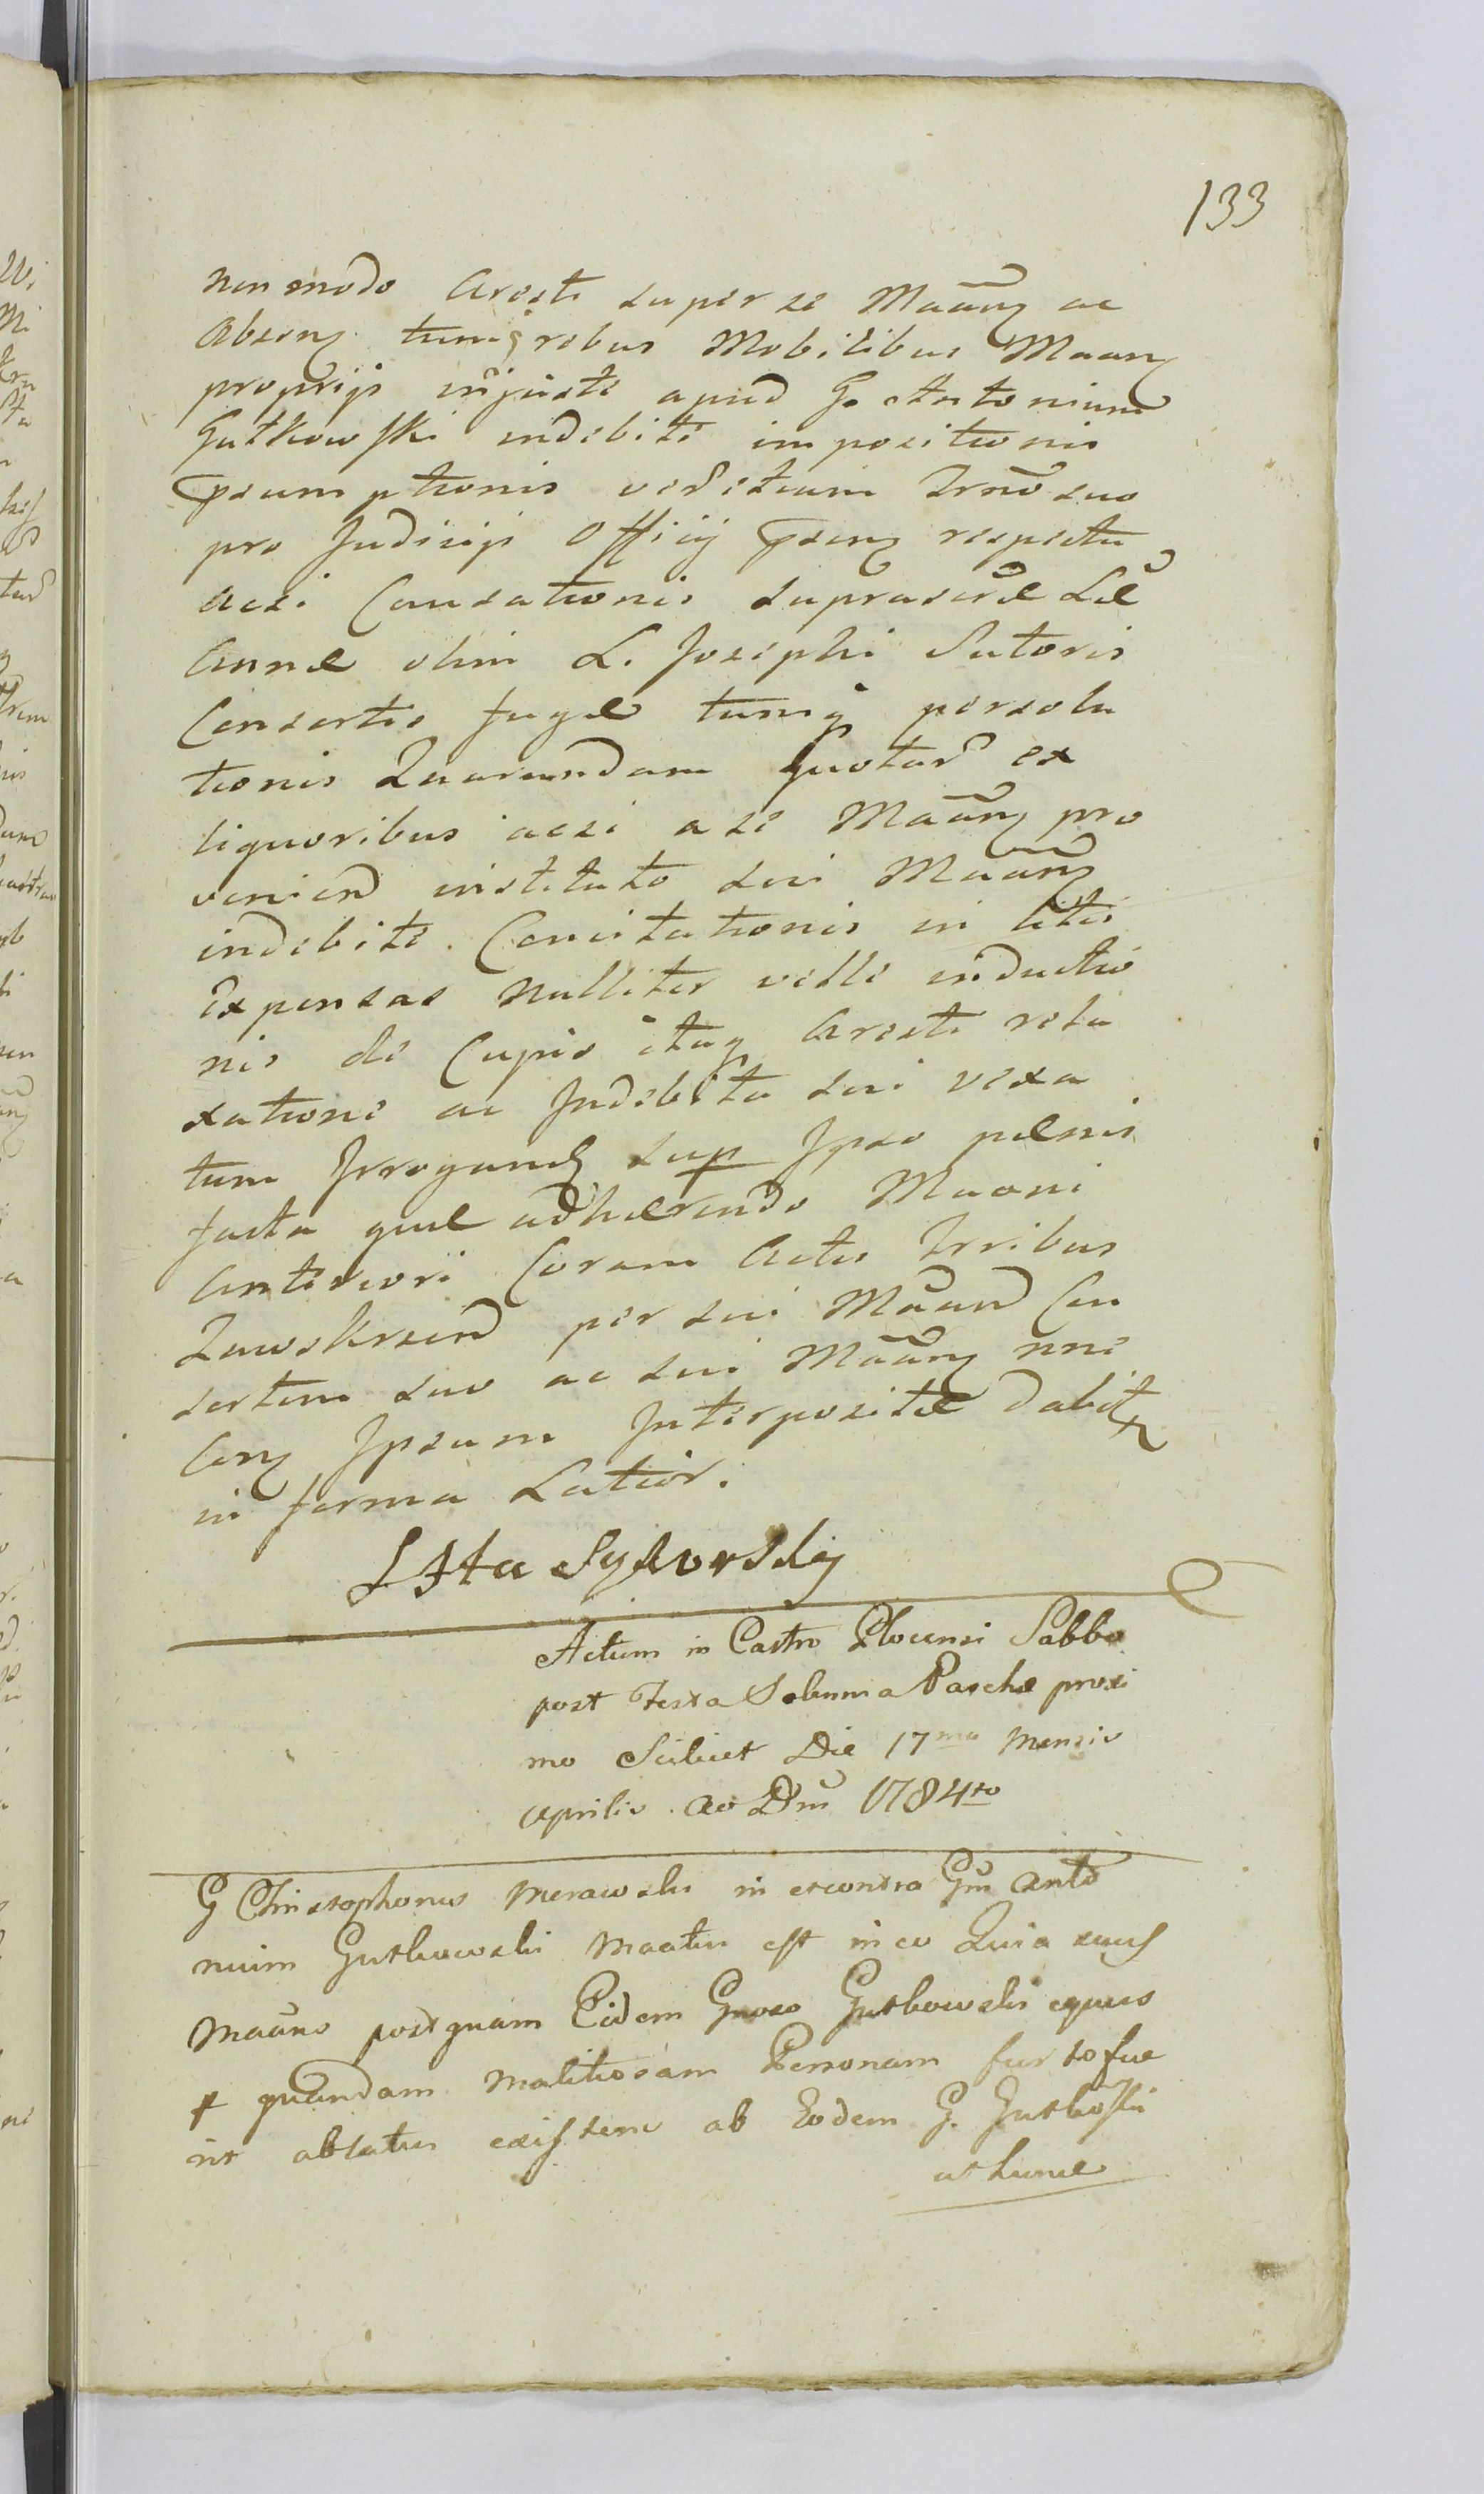 133
non modo Aresti super se Maãnẽ ac
absenẽ tumq̃ rebus Mobilibus Maanẽ
proprijs injuste apud G. Antonium
Gutkowski indebite impositionis
psumptionis
pro Judicijs Officij psenẽ respectu
acsi Causationis suprascræ Læ
Annæ olim L. Josephi Sutoris
Consortis fugæ tumq̃ persolu
tionis Quarundam quotar̃ ex
liquoribus acsi a se Maãnẽ pro
venien̄ instituto sui Maãnẽ
indebite. Concitationis in litis
Expensas nulliter velle inductio
nis de Cupis itaq̃ Aresti rela
xatione ac Indebita sui vexa
tum Irrogand̃ sup Ipso pænis
facta quæ adhærendo Maoni
Anteriori Coram Actis Trribus
Zawskrzen̄ per sui Mãan̄ Con
sortem suo ac sui Mãanẽ nne
Conẽ Ipsum Interpositæ dabitr
in forma Latior.
Actum in Castro Plocensi Sabbo
post Festa Solennia Paschæ proxi
mo Scilicet Die 17ma Mensis
Aprilis Ao Dni 1784to
G Christophorus Merawski in et contra Gm Anto
nium Gutkowski Maatus est in eo Quia
Maãns postquam Eidem Groso Gutkowski equus
p quandam Malitiosam Personam furto fue
rit ablatus existens ab Eodem G. Gutkoski